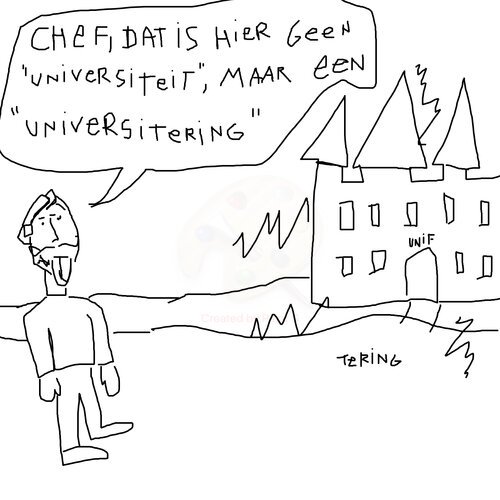 CHEF, DAT IS HIER GEEN
"UNIVERSITEIT", MAAR EEN
"UNIVERSITERING"
UNIF
Created
TERING